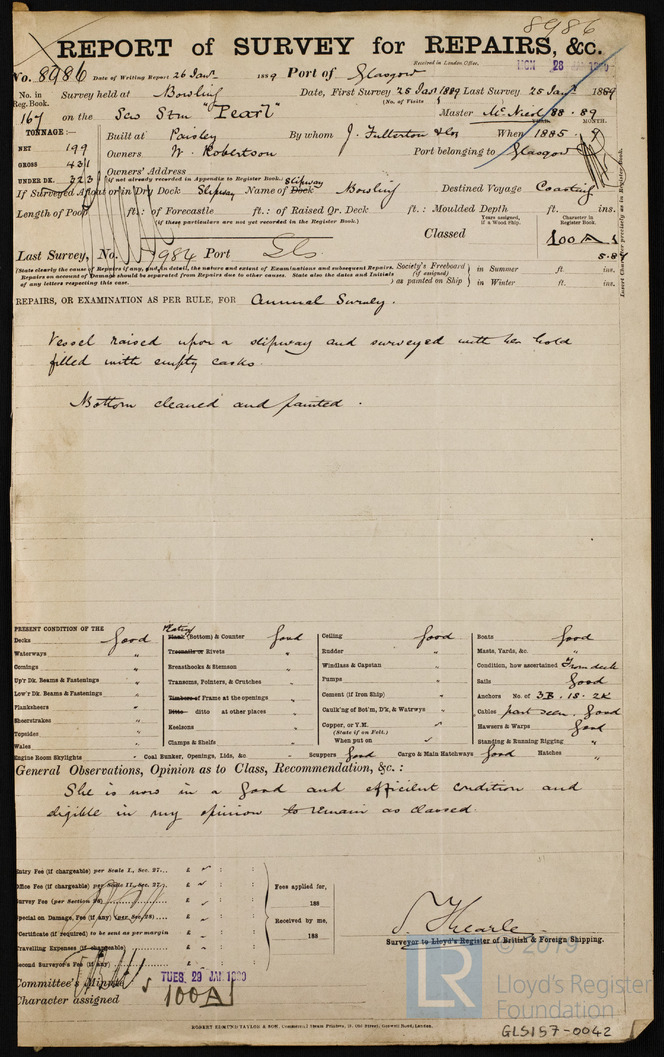 8986
REPORT of SURVEY for REPAIRS, &c.
Received in London Office.
MON 28 JAN 1889
No. 8986 Date of Writing Report 26 Jany 1889 Port of Glasgow
No. in Reg. Book. Survey held at Bowling Date, First Survey 25 Jany 1889 Last Survey 25 Jany 1889
(No. of Visits )
164 on the Scw Stm "Pearl" Master McNeil 88.89
TONNAGE:— Built at Paisley By whom J. Fullerton & Co When 1885 . 9
YEAR. MONTH.
NET 199 Owners W. Robertson Port belonging to Glasgow
GROSS 431 Owners' Address
UNDER DK. 323 (if not already recorded in Appendix to Register Book.)
If Surveyed Afloat or in Dry Dock Slipway Name of Dock Slipway Bowling Destined Voyage Coasting
Length of Poop ft.: of Forecastle ft.: of Raised Qr. Deck ft.: Moulded Depth ft. ins.
(if these particulars are not yet recorded in the Register Book.)
Years assigned, if a Wood Ship. Character in Register Book.
Classed 100 A 1
5.87
Insert Character precisely as in Register Book.
Last Survey, No. 8984 Port Gls.
(State clearly the cause of Repairs if any, and, in detail, the nature and extent of Examinations and subsequent Repairs.
Repairs on account of Damage should be separated from Repairs due to other causes. State also the dates and Initials
of any letters respecting this case.
Society's Freeboard (if assigned) as painted on Ship } in Summer ft. ins.
in Winter ft. ins.
REPAIRS, OR EXAMINATION AS PER RULE, FOR Annual Survey.
Vessel raised upon a slipway and surveyed with her hold
filled with empty casks.
Bottom cleaned and painted.
PRESENT CONDITION OF THE
Decks Good
Waterways "
Comings "
Up'r Dk. Beams & Fastenings "
Low'r Dk. Beams & Fastenings "
Planksheers "
Sheerstrakes "
Topsides "
Wales "
Engine Room Skylights "
Plating
Plank (Bottom) & Counter Good
Treenails or Rivets "
Breasthooks & Stemson "
Transoms, Pointers, & Crutches "
Timbers of Frame at the openings "
Ditto ditto at other places "
Keelsons "
Clamps & Shelfs "
Coal Bunker, Openings, Lids, &c "
Ceiling Good
Rudder "
Windlass & Capstan "
Pumps "
Cement (if Iron Ship) "
Caulk'ng of Bot'm, D'k, & Watrwys "
Copper, or Y.M.
(State if on Felt.)
When put on
Scuppers Good Cargo & Main Hatchways Good Hatches "
Boats Good
Masts, Yards, &c. "
Condition, how ascertained From deck
Sails Good
Anchors No. of 3B. 1S. 2K
Cables part seen. Good
Hawsers & Warps Good
Standing & Running Rigging "
General Observations, Opinion as to Class, Recommendation, &c.:
She is now in a good and efficient condition and
eligible in my opinion to remain as classed.
Entry Fee (if chargeable) per Scale I., Sec. 27... £ : :
Office Fee (if chargeable) per Scale II., Sec. 27.. £ : :
Survey Fee (per Section 28) £ : :
Special on Damage, Fee (if any) (per Sec. 28) £ : :
Certificate (if required) to be sent as per margin £ : :
Travelling Expenses (if chargeable) £ : :
Second Surveyor's Fee (if any) £ : :
Fees applied for,
188
Received by me,
188
Hearle
Surveyor to Lloyd's Register of British & Foreign Shipping.
Committee's Minute TUES. 29 JAN 1889
Character assigned 100A1
ROBERT EDMUND TAYLOR & SON,
© 2019
LR Lloyd's Register
Foundation
GLS157-0042